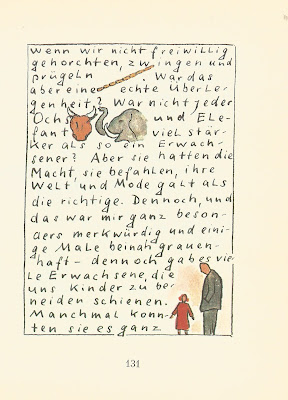 wenn wir nicht freiwillig
gehorchten, zwingen und
prügeln . War das
aber eine echte Überle-
genheit? War nicht jeder
Ochs und Ele-
fant viel stär-
ker als so ein Erwach-
sener? Aber sie hatten die
Macht, sie befahlen, ihre
Welt und Mode galt als
die richtige. Dennoch, und
das war mir ganz beson-
ders merkwürdig und eini-
ge Male beinah grauen-
haft – dennoch gab es vie-
le Erwachsene, die
uns Kinder zu be-
neiden schienen.
Manchmal konn-
ten sie es ganz
131